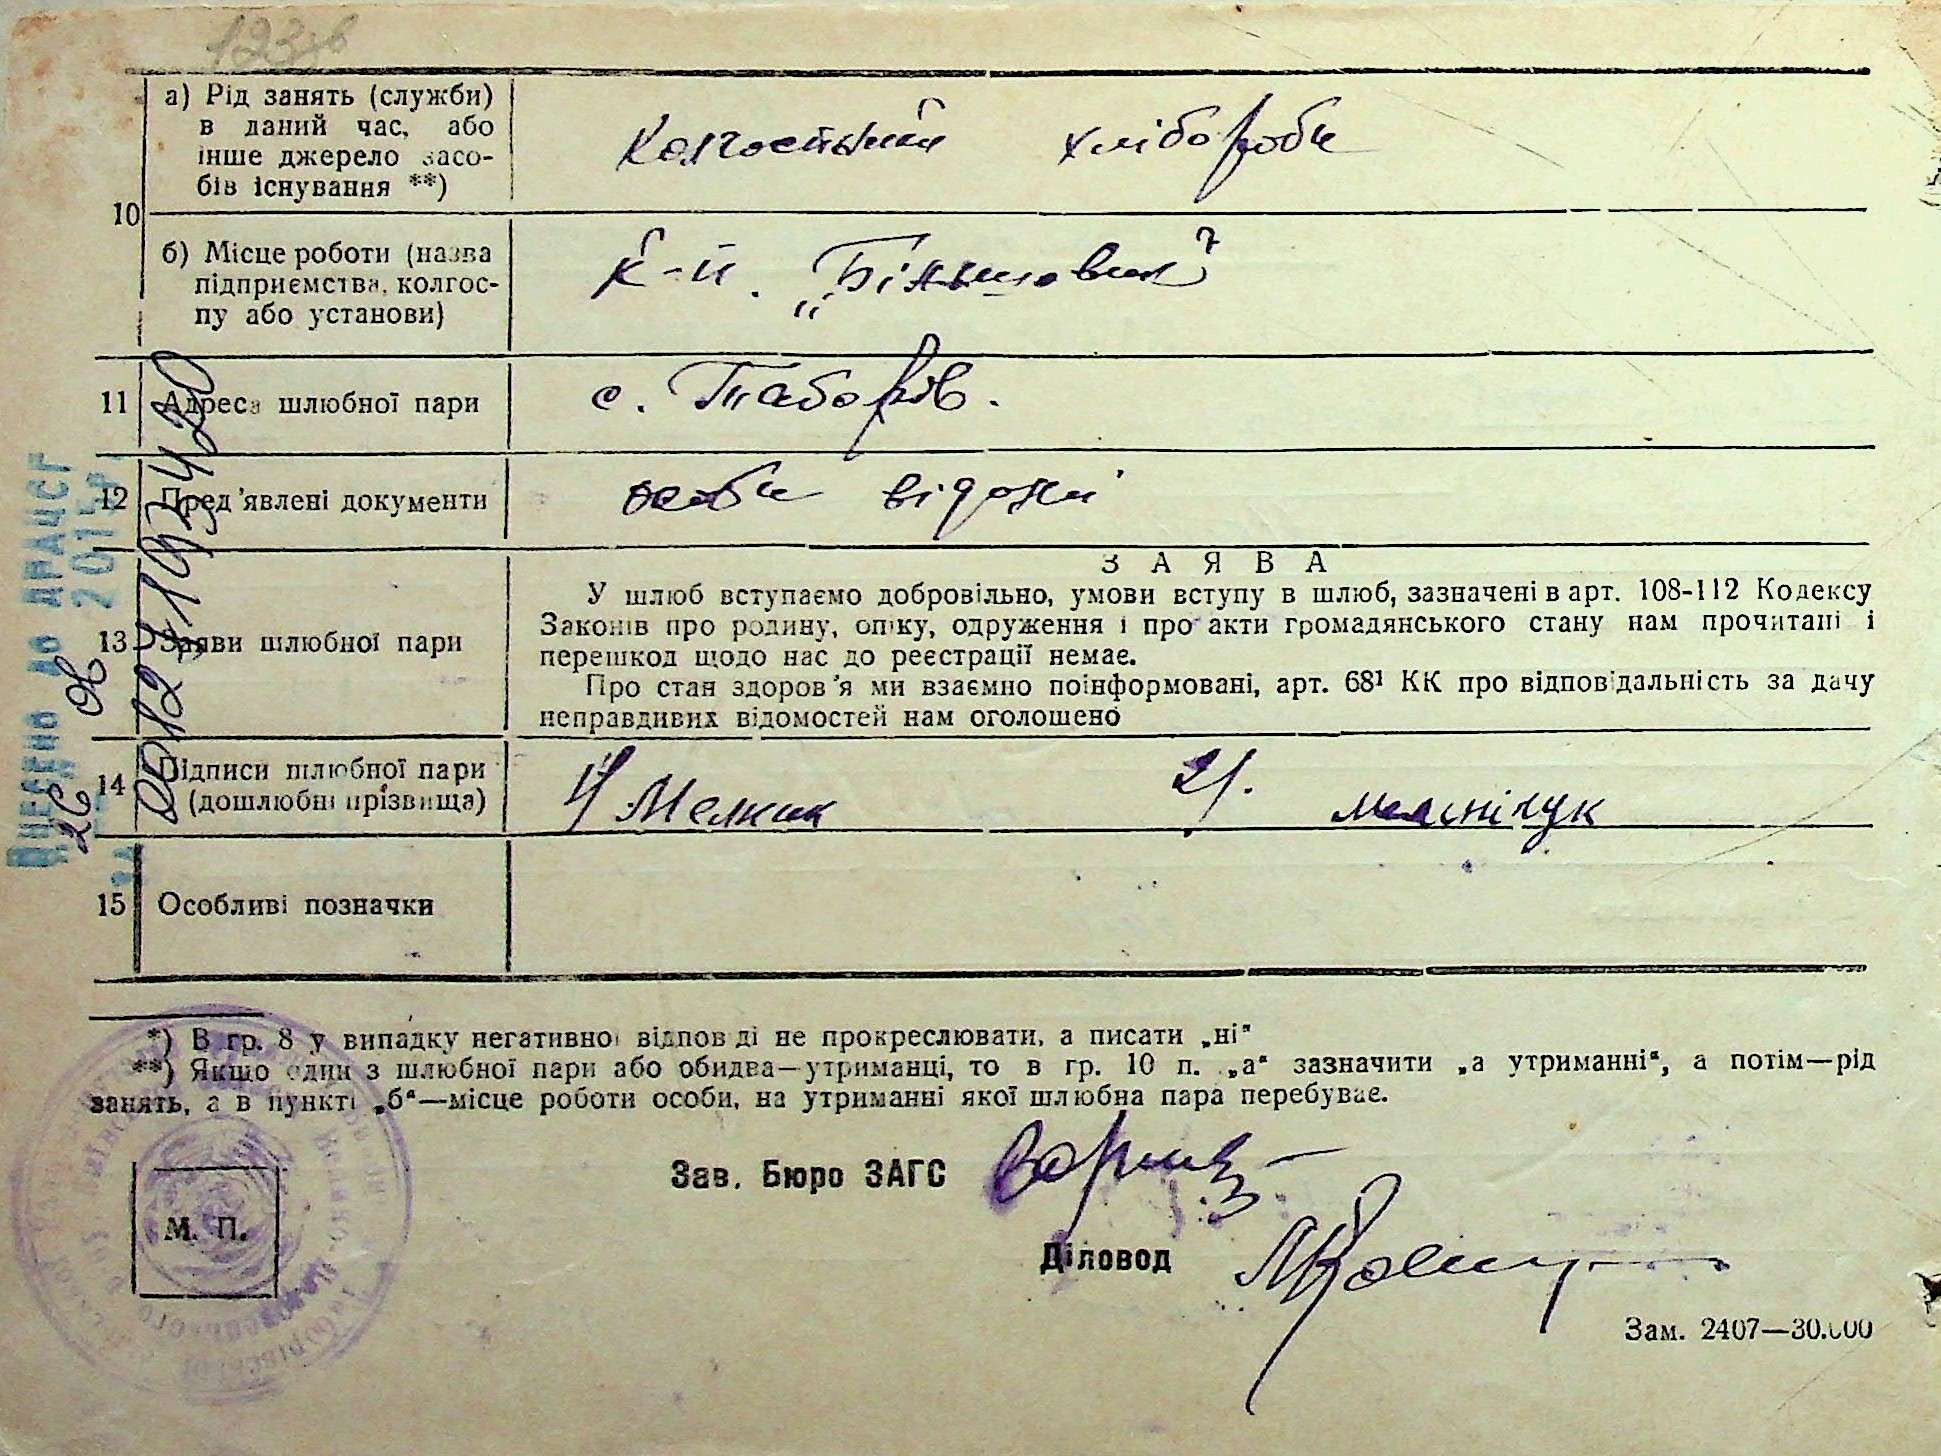 123зв
10
а) Рід занять (служби)
в даний час, або
інше джерело засо-
бів існування **)
Колгоспники хлібороби
б) Місце роботи (назва
підприємства, колгос-
пу або установи)
к-п. „Більшовик"
11 Адреса шлюбної пари
с. Таборів.
12 Пред'явлені документи
особи відомі
13 Заяви шлюбної пари
ЗАЯВА
У шлюб вступаємо добровільно, умови вступу в шлюб, зазначені в арт. 108-112 Кодексу
Законів про родину, опіку, одруження і про акти громадянського стану нам прочитані і
перешкод щодо нас до реєстрації немає.
Про стан здоров'я ми взаємно поінформовані, арт. 68¹ КК про відповідальність за дачу
неправдивих відомостей нам оголошено
14 Підписи шлюбної пари
(дошлюбні прізвища)
1/ Мельник 2/.
15 Особливі позначки
Внесено до ДРАЦСГ
26 08 2015р.
00124193420
*) В гр. 8 у випадку негативної відповіді не прокреслювати, а писати „ні"
**) Якщо один з шлюбної пари або обидва—утриманці, то в гр. 10 п. „а" зазначити „а утриманні", а потім—рід
занять, а в пункті „б"—місце роботи особи, на утриманні якої шлюбна пара перебуває.
Зав. Бюро ЗАГС
М. П.
Діловод
Зам. 2407—30.000